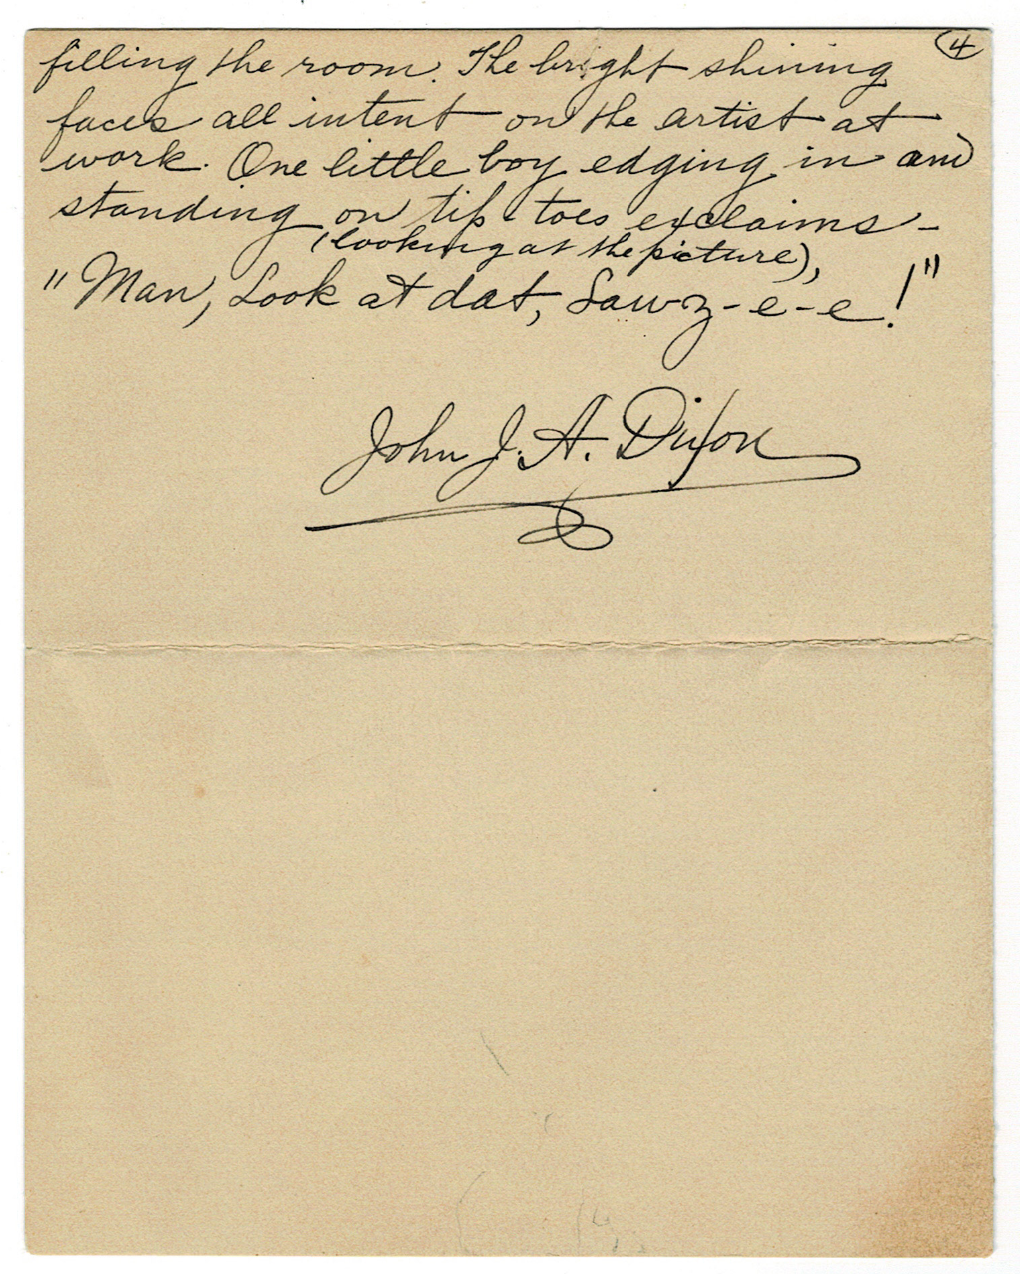 4
filling the room. The bright shining
faces all intent on the artist at
work. One little boy edging in and
standing on tip toes exclaims -
(looking at the picture),
"Man, Look at dat, Lawz-e-e!"
John J. A. Dixon